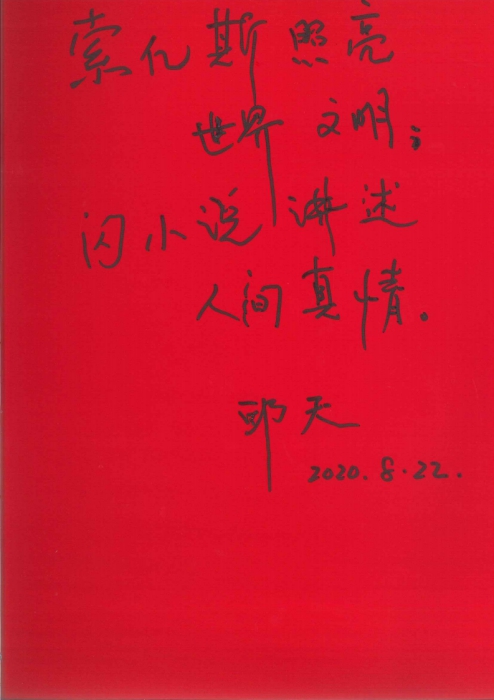 索亿斯照亮
世界文明；
闪小说讲述
人间真情。
邱天
2020.8.22.